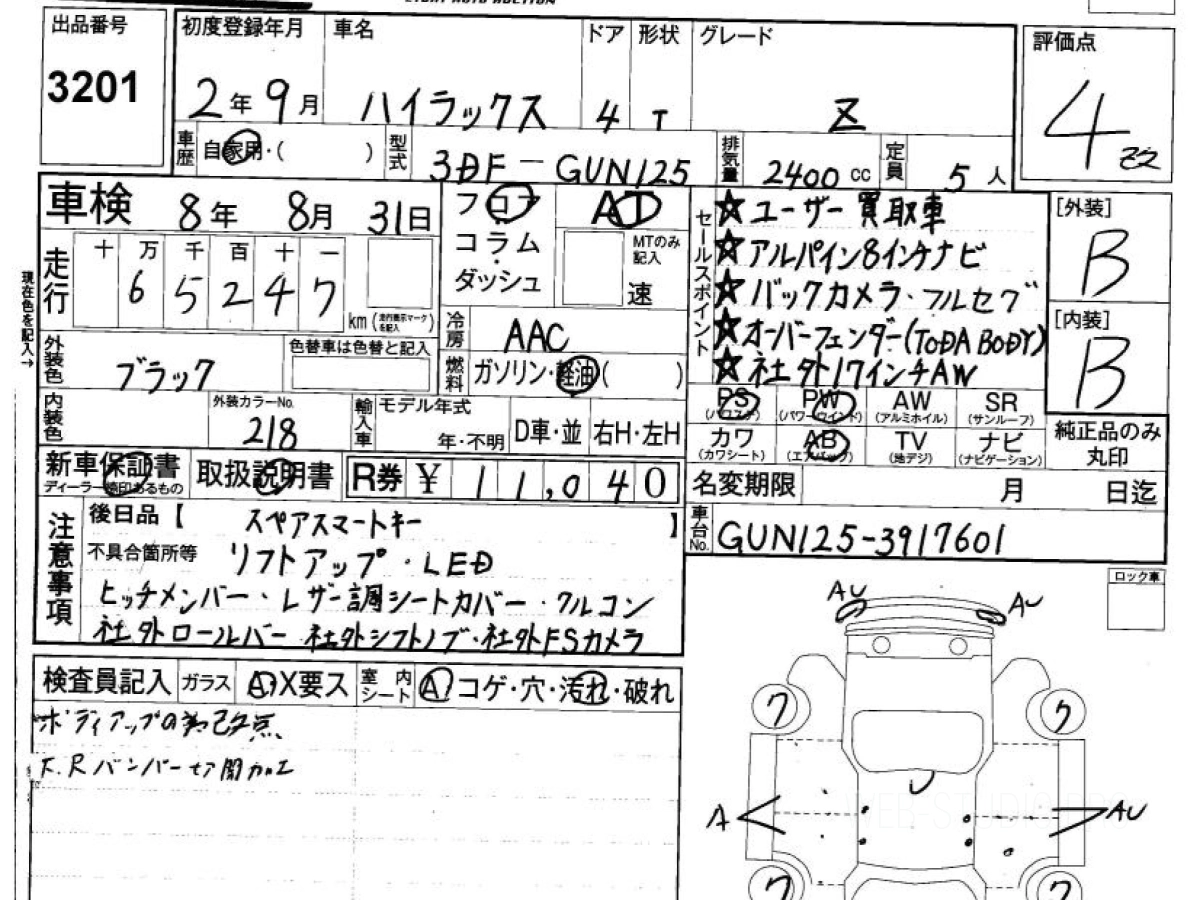 出品番号 初度登録年月 車名 ドア 形状 グレード 評価点
3201 2年9月 ハイラックス 4 T Z 4
車歴 自家用・( ) 型式 3DF-GUN125 排気量 2400cc 定員 5人
車検 8年 8月 31日 フロア AT
コラム・ダッシュ MTのみ記入 速
走行 十 万 千 百 十 一
6 5 2 4 7 km(走行表示マークを記入)
現在色を記入→
セールスポイント
☆ユーザー買取車
☆アルパイン8インチナビ
☆バックカメラ・フルセグ
☆オーバーフェンダー(TODA BODY)
☆社外17インチAW
[外装]
B
[内装]
B
冷房 AAC
外装色 ブラック 色替車は色替と記入
燃料 ガソリン・軽油( )
内装色 外装カラーNo. 218 輸入車 モデル年式 年・不明 D車・並 右H・左H
PS(パワステ) PW(パワーウインド) AW(アルミホイル) SR(サンルーフ)
カワ(カワシート) AB(エアバック) TV(地デジ) ナビ(ナビゲーション)
純正品のみ丸印
新車保証書 ディーラー捺印あるもの 取扱説明書 R券 ¥ 11,040
名変期限 月 日迄
車台No. GUN125-3917601
注意事項
後日品【 スペアスマートキー 】
不具合箇所等 リフトアップ・LED
ヒッチメンバー・レザー調シートカバー・クルコン
社外ロールバー 社外シフトノブ・社外FSカメラ
ロック車
検査員記入 ガラス A・X要ス 室内シート A コゲ・穴・汚れ・破れ
F.Rバンパー
AU AU
ワ ワ
A AU
ワ ワ